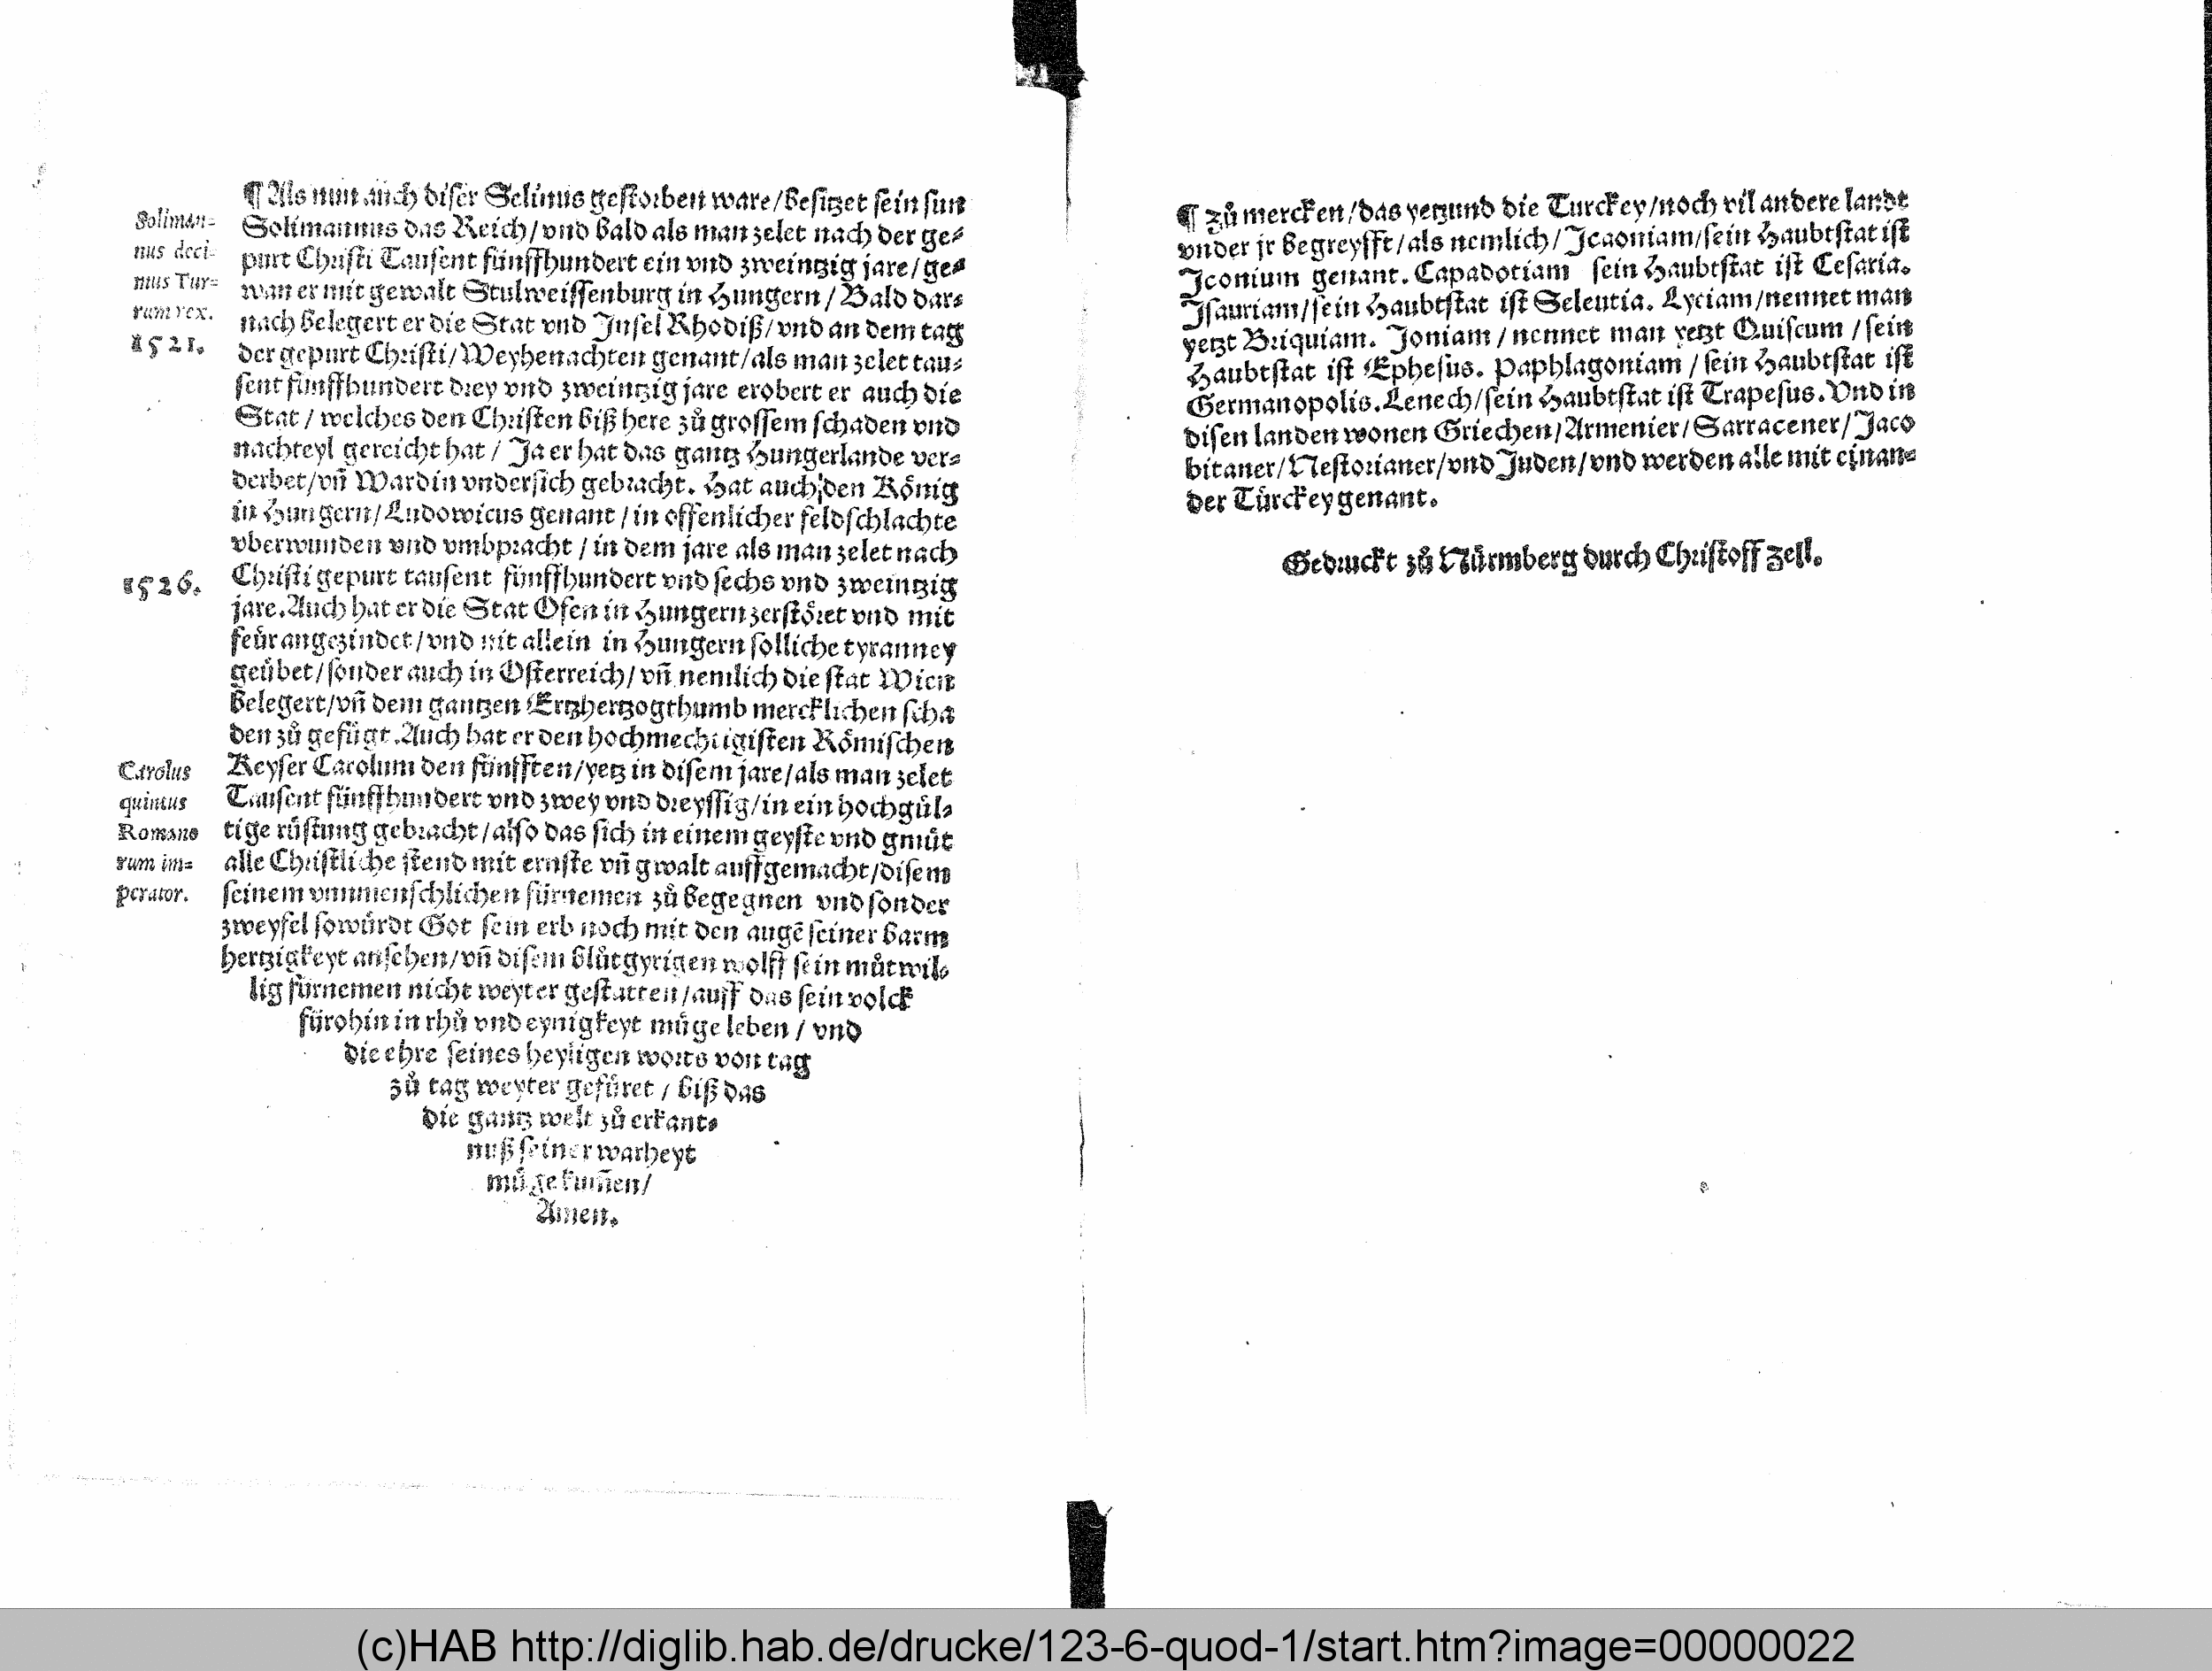 ¶ Als nun auch diser Selimus gestorben ware/besitzet sein sun
Solimannus das Reich/vnd bald als man zelet nach der ge⸗
purt Christi Tausent fünffhundert ein vnd zweintzig jare/ge⸗
wan er mit gewalt Stulweissenburg in Hungern/Bald dar⸗
nach belegert er die Stat vnd Jnsel Rhodiß/vnd an dem tag
der gepurt Christi/Weyhenachten genant/als man zelet tau⸗
sent fünffhundert drey vnd zweintzig jare erobert er auch die
Stat/welches den Christen biß here zů grossem schaden vnd
nachteyl gereicht hat/Ja er hat das gantz Hungerlande ver⸗
derbet/vñ Wardin vndersich gebracht. Hat auch den König
in Hungern/Ludowicus genant/in offenlicher feldschlachte
vberwunden vnd vmbpracht/in dem jare als man zelet nach
Christi gepurt tausent fünffhundert vnd sechs vnd zweintzig
jare. Auch hat er die Stat Ofen in Hungern zerstöret vnd mit
feür angezindet/vnd nit allein in Hungern solliche tyranney
geübet/sonder auch in Osterreich/vñ nemlich die stat Wien
belegert/vñ dem gantzen Ertzhertzogthumb mercklichen scha
den zů gefügt. Auch hat er den hochmechtigisten Römischen
Keyser Carolum den fünfften/yetz in disem jare/als man zelet
Tausent fünffhundert vnd zwey vnd dreyssig/in ein hochgül⸗
tige rüstung gebracht/also das sich in einem geyste vnd gmüt
alle Christliche stend mit ernste vñ gwalt auffgemacht/disem
seinem vnmenschlichen fürnemen zů begegnen vnd sonder
zweyfel so würdt Got sein erb noch mit den augē seiner barm
hertzigkeyt ansehen/vñ disem blůtgyrigen wolff sein můtwil⸗
lig fürnemen nicht weyter gestatten/auff das sein volck
fürohin in rhů vnd eynigkeyt müge leben/vnd
die ehre seines heyligen worts von tag
zů tag weyter gefüret/biß das
die gantz welt zů erkant⸗
nuß seiner warheyt
müge kum̃en/
Amen.
Soliman⸗
nus deci⸗
mus Tur⸗
rum rex.
1521.
1526.
Carolus
quintus
Romano
rum im⸗
perator.
¶ Zů mercken/das yetzund die Turckey/noch vil andere landt
vnder jr begreyfft/als nemlich/Jcaoniam/sein Haubtstat ist
Jconium genant. Capadotiam sein Haubtstat ist Cesaria.
Jsauriam/sein Haubtstat ist Seleutia. Lyciam/nennet man
yetzt Briquiam. Joniam/nennet man yetzt Quiscum/sein
Haubtstat ist Ephesus. Paphlagoniam/sein Haubtstat ist
Germanopolis. Lenech/sein Haubtstat ist Trapesus. Vnd in
disen landen wonen Griechen/Armenier/Sarracener/Jaco
bitaner/Nestorianer/vnd Juden/vnd werden alle mit einan⸗
der Türckey genant.
Gedruckt zů Nürmberg durch Christoff Zell.
(c)HAB http://diglib.hab.de/drucke/123-6-quod-1/start.htm?image=00000022